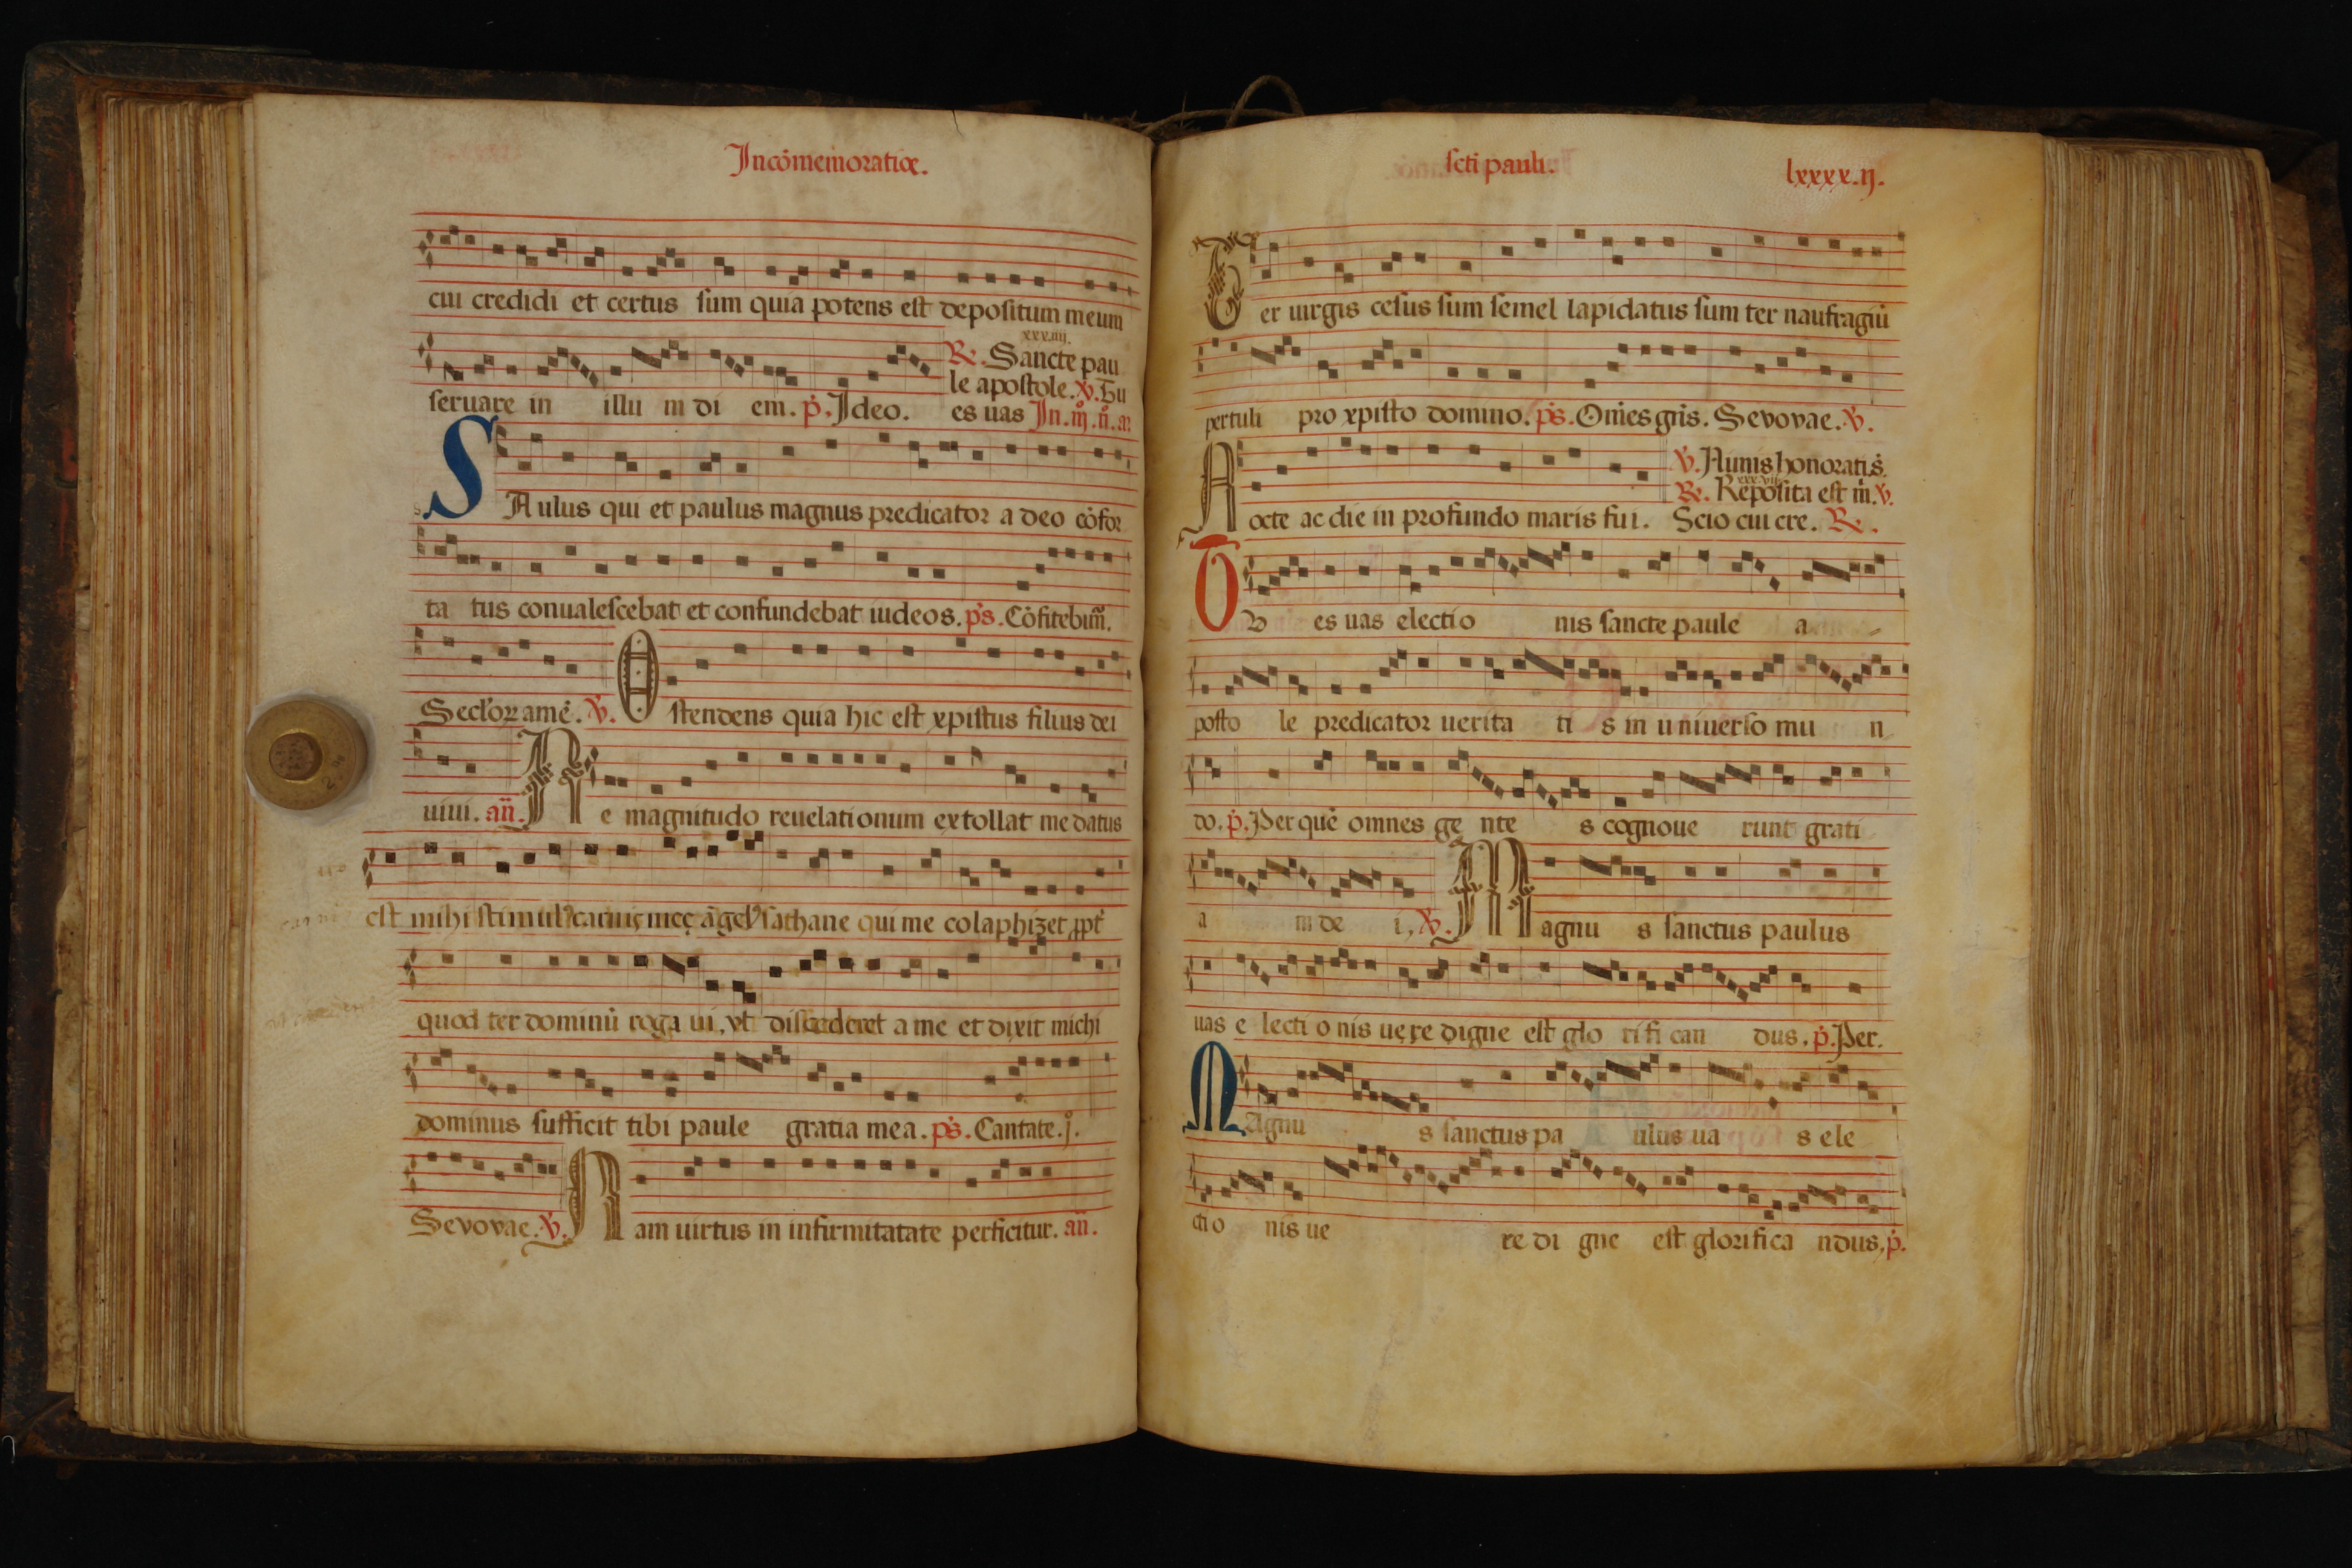 Incōmemoratiōe.
cui credidi et certus sum quia potens est depositum meum
xxx.iiij.
R. Sancte pau
le apostole. V. Tu
seruare in illu m di em. p. Ideo. es uas In. m. n. a
SAulus qui et paulus magnus predicator a deo cōfor
ta tus conualescebat et confundebat iudeos. ps. Cōfitebim̄.
Seclor amē. V. Ostendens quia hic est xpistus filius dei
uiui. an̄. Ne magnitudo reuelationum extollat me datus
est mihi stimul carnis meę āgel sathane qui me colaphizet ppt
quod ter dominū roga ui, vt discederet a me et dixit michi
dominus sufficit tibi paule gratia mea. ps. Cantate. j.
Sevovae. V. Nam uirtus in infirmitatate perficitur. an̄.
scti pauli. lxxxx.ij.
Ter uirgis cesus sum semel lapidatus sum ter naufragiū
pertuli pro xpisto domino. ps. Om̄es gn̄s. Sevovae. V.
V. Nimis honorati s̄.
R. Reposita est m. V.
Nocte ac die in profundo maris fui. Scio cui cre. R.
TV es uas electio nis sancte paule a
posto le predicator uerita ti s in u niuerso mu n
do. p. Per quē omnes ge nte s cognoue runt grati
a m de i, V. Magnu s sanctus paulus
uas e lecti o nis uere digne est glo ri fi can dus. p. Per.
MAgnu s sanctus pa ulus ua s ele
cti o nis ue re di gne est glorifica ndus, p.